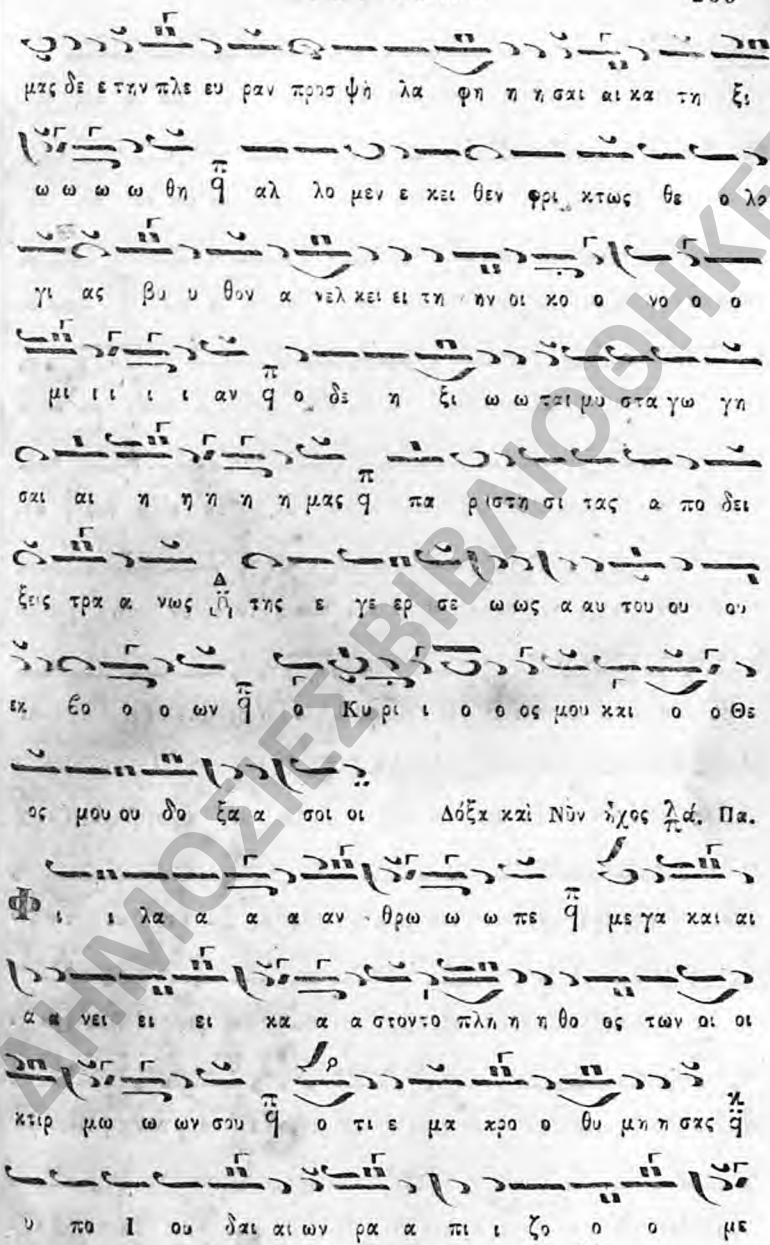 μας δε ε την πλε ευ ραν προσ ψη λα φη η η σαι αι κα τη ξι
ω ω ω ω θη π q αλ λο μεν ε κει θεν φρι κτως θε ο λο
γι ας βυ υ θον α νελ κει ει τη ην οι κο ο νο ο ο
μι ι ι ι ι αν π q ο δε η ξι ω ω ται μυ στα γω γη
σαι αι η η η η η μας π q πα ρι στη σι τας α πο δει
ξεις τρα α νως Δ της ε γε ερ σε ω ως α αυ του ου ου
εκ βο ο ο ων π q ο Κυ ρι ι ο ο ος μου και ο ο Θε
ος μου ου δο ξα α σοι οι Δόξα καὶ Νῦν ἦχος λ π ά. Πα.
Φ ι ι λα α α α αν θρω ω ω πε π q με γα και αι
α α νει ει ει κα α α στον το πλη η η θο ος των οι οι
κτιρ μω ω ων σου π q ο τι ε μα κρο ο θυ μη η σας κ q
υ πο Ι ου δαι αι ων ρα α πι ι ζο ο ο με
ΔΗΜΟΣΙΕΣ ΒΙΒΛΙΟΘΗΚΕΣ